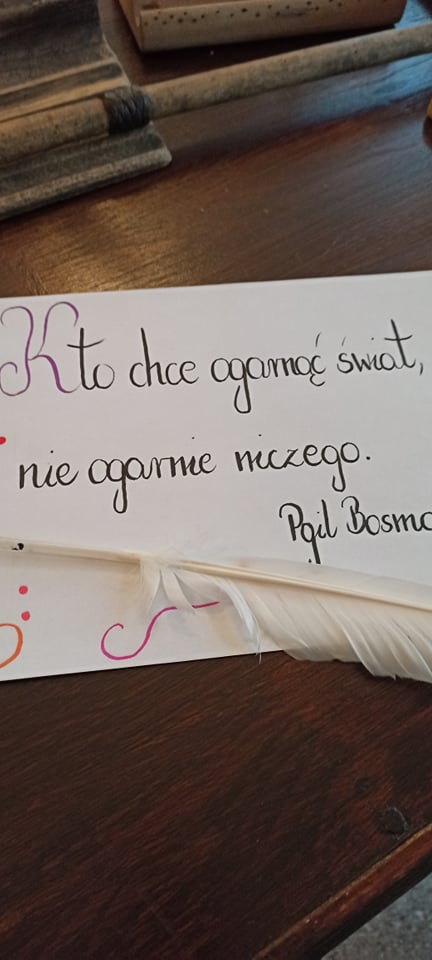 Kto chce ogarnąć świat,
nie ogarnie niczego.
Pqil Bosma